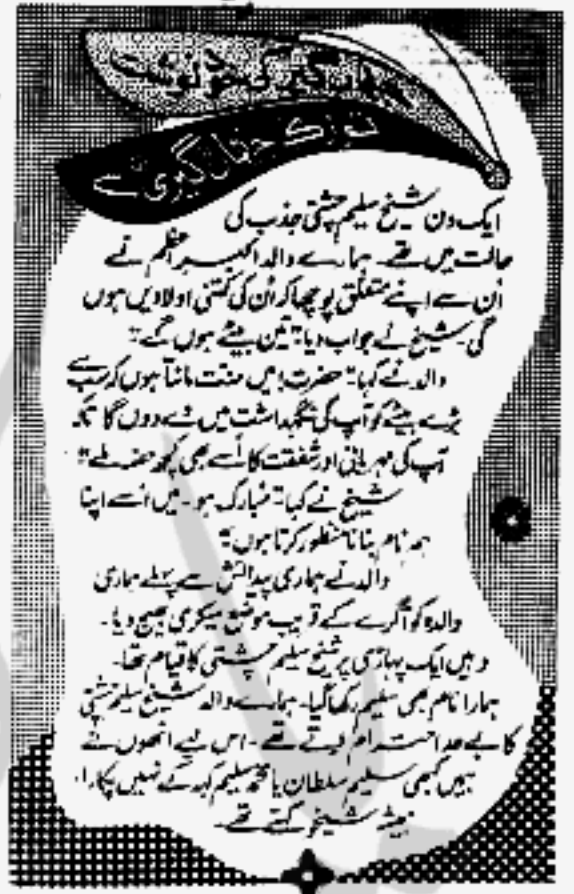 جہانگیر کی خود نوشت
تزک جہانگیری سے
ایک دن شیخ سلیم چشتی جذب کی
حالت میں تھے۔ ہمارے والد اکبر اعظم نے
اُن سے اپنے متعلق پوچھا کہ اُن کی کتنی اولادیں ہوں
گی۔ شیخ نے جواب دیا "تین بیٹے ہوں گے"
والد نے کہا "حضرت! میں منت مانتا ہوں کہ سب سے
بڑے بیٹے کو آپ کی نگہداشت میں دے دوں گا تاکہ
آپ کی مہربانی اور شفقت کا اُسے بھی کچھ حصہ ملے"
شیخ نے کہا "مبارک ہو۔ میں اسے اپنا
ہم نام بنانا منظور کرتا ہوں"
والد نے ہماری پیدائش سے پہلے ہماری
والدہ کو آگرے کے قریب موضع سیکری بھیج دیا۔
وہیں ایک پہاڑی پر شیخ سلیم چشتی کا قیام تھا۔
ہمارا نام بھی سلیم رکھا گیا۔ ہمارے والد شیخ سلیم چشتی
کا بے حد احترام کرتے تھے۔ اس لیے انھوں نے
ہمیں کبھی سلیم سلطان یا محمد سلیم کہہ کے نہیں پکارا۔
ہمیشہ شیخو کہتے تھے۔